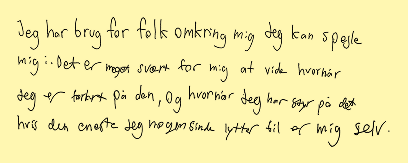 Jeg har brug for folk omkring mig jeg kan spejle
mig i. Det er meget svært for mig at vide hvornår
jeg er forkert på den, og hvornår jeg har på det
hvis den eneste jeg nogensinde lytter til er mig selv.